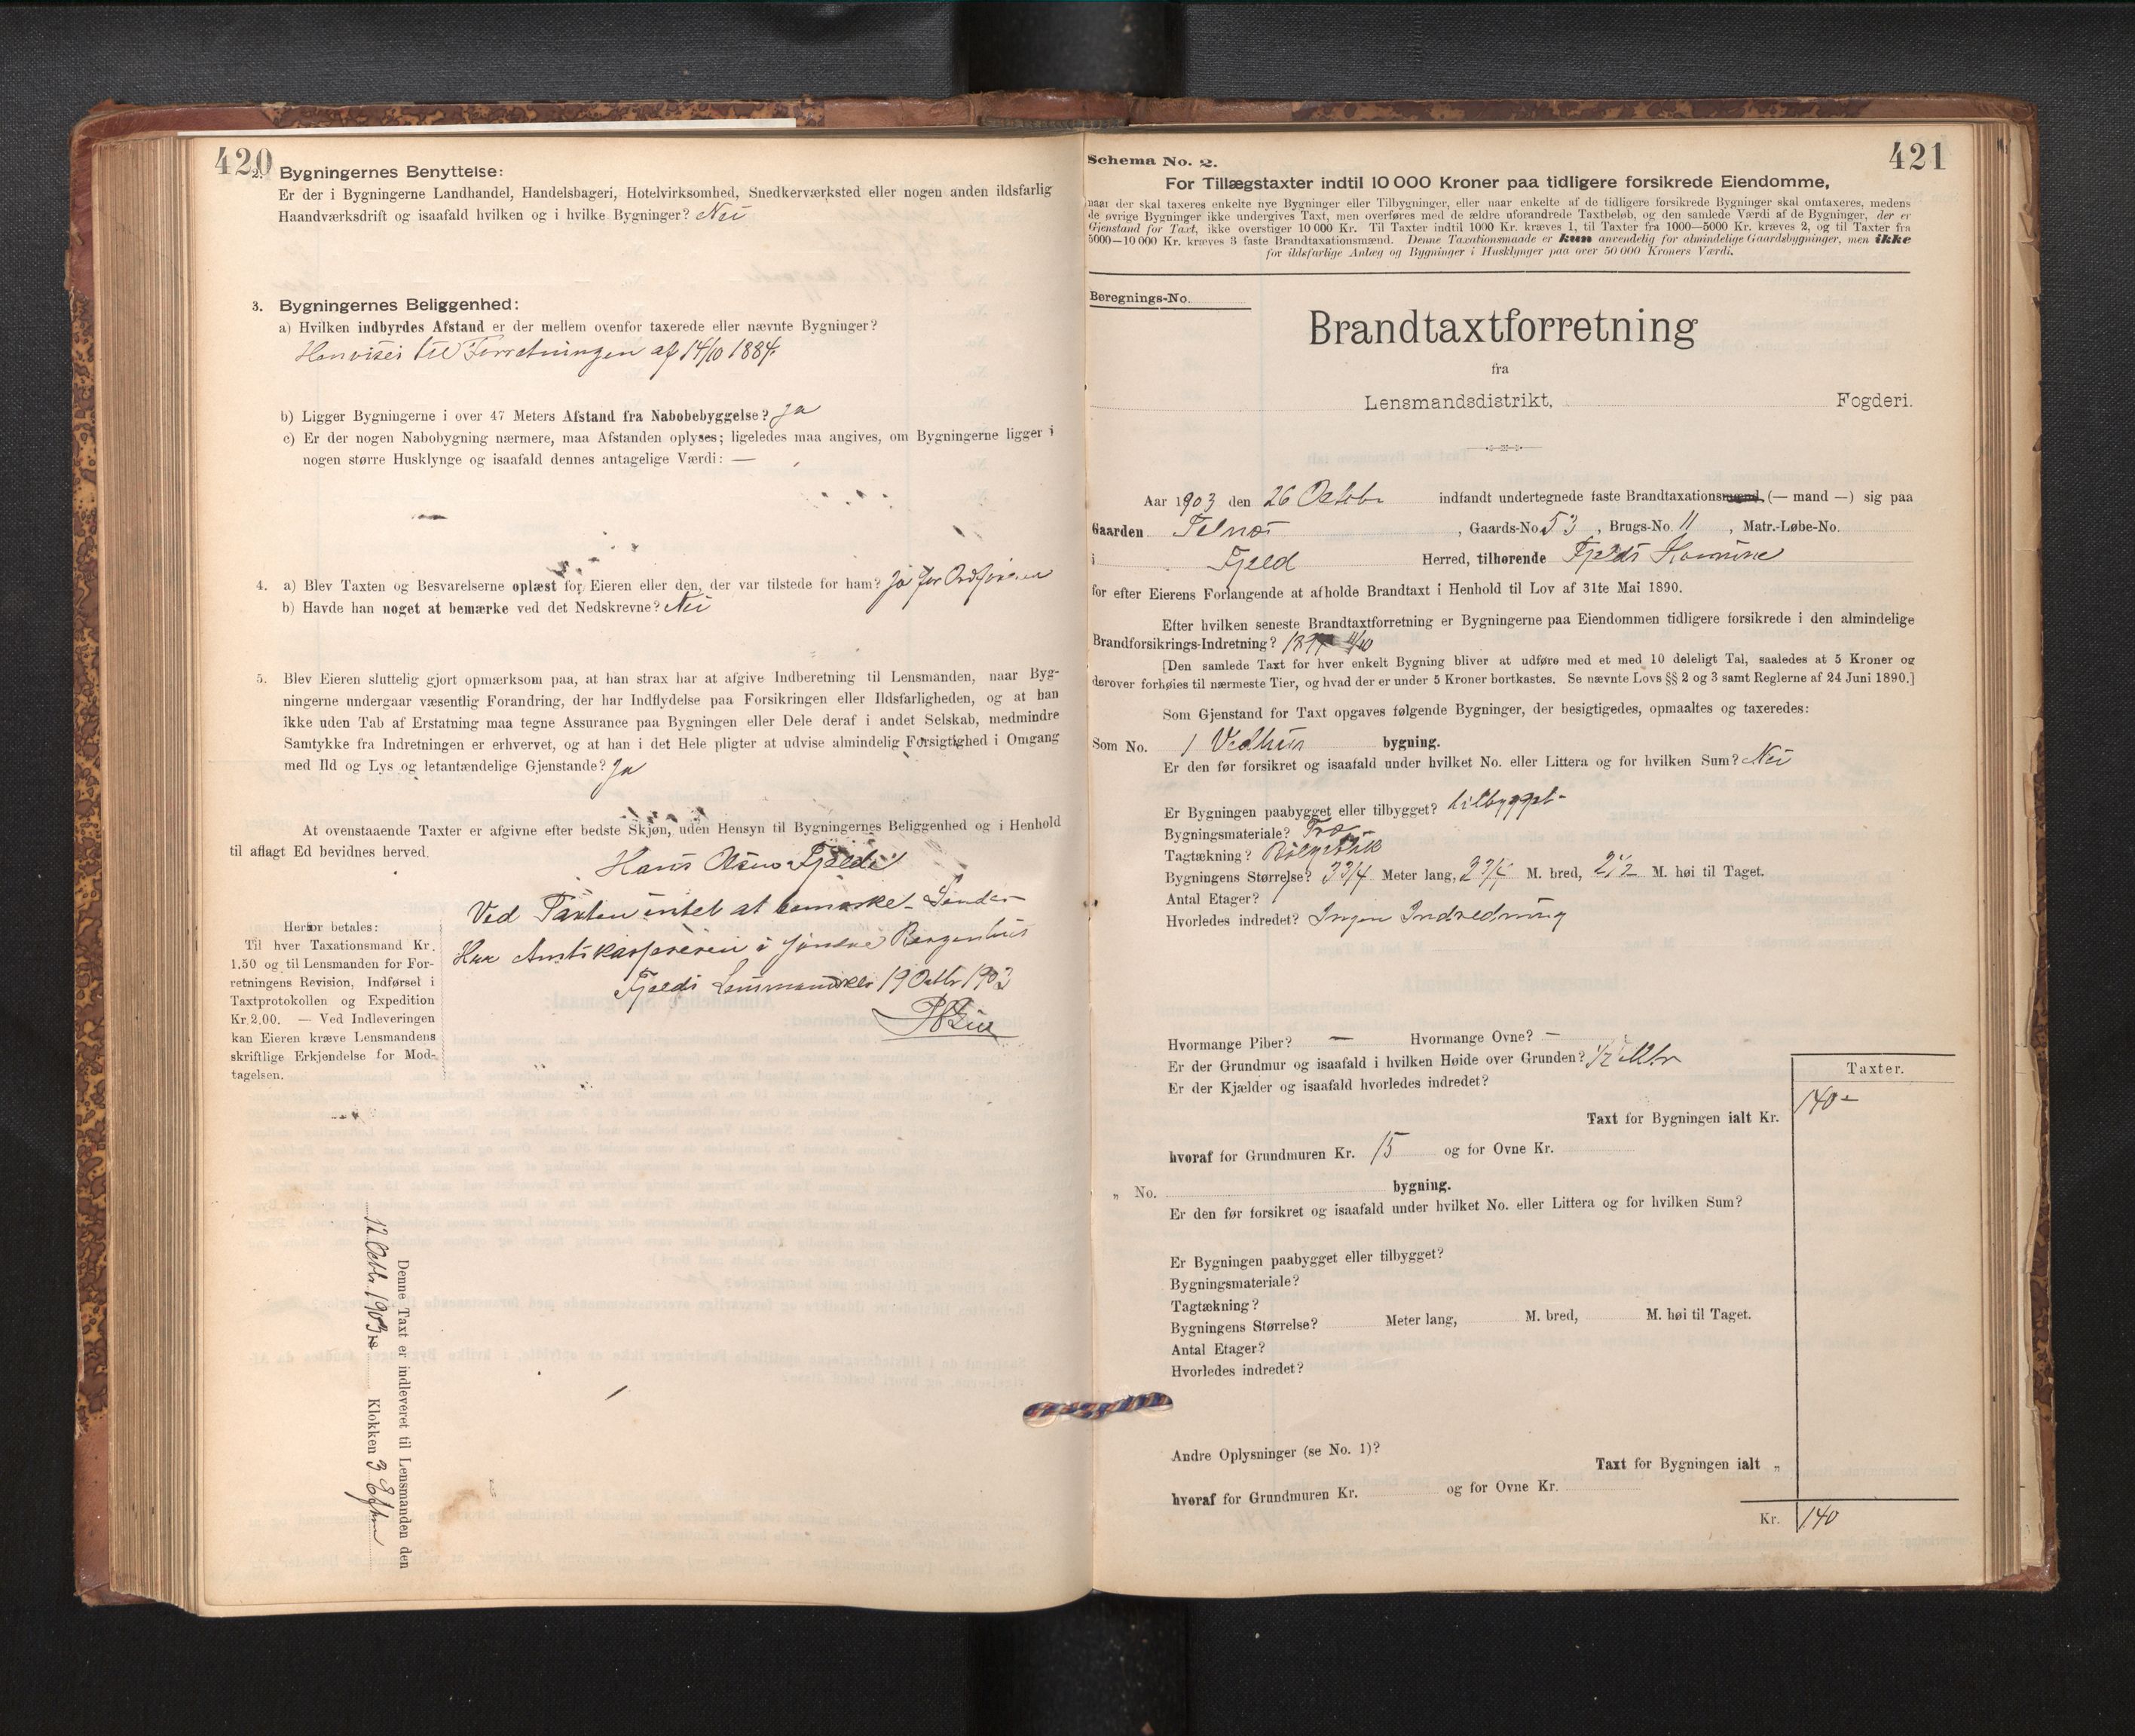 420
2. Bygningernes Benyttelse:
Er der i Bygningerne Landhandel, Handelsbageri, Hotelvirksomhed, Snedkerværksted eller nogen anden ildsfarlig
Haandværksdrift og isaafald hvilken og i hvilke Bygninger? Nei
3. Bygningernes Beliggenhed:
a) Hvilken indbyrdes Afstand er der mellem ovenfor taxerede eller nævnte Bygninger?
Henvises til Forretningen af 14/10 1884.
b) Ligger Bygningerne i over 47 Meters Afstand fra Nabobebyggelse? Ja
c) Er der nogen Nabobygning nærmere, maa Afstanden oplyses; ligeledes maa angives, om Bygningerne ligger i
nogen større Husklynge og isaafald dennes antagelige Værdi: —
4. a) Blev Taxten og Besvarelserne oplæst for Eieren eller den, der var tilstede for ham? Ja for Ordføreren
b) Havde han noget at bemærke ved det Nedskrevne? Nei
5. Blev Eieren sluttelig gjort opmærksom paa, at han strax har at afgive Indberetning til Lensmanden, naar Byg-
ningerne undergaar væsentlig Forandring, der har Indflydelse paa Forsikringen eller Ildsfarligheden, og at han
ikke uden Tab af Erstatning maa tegne Assurance paa Bygningen eller Dele deraf i andet Selskab, medmindre
Samtykke fra Indretningen er erhvervet, og at han i det Hele pligter at udvise almindelig Forsigtighed i Omgang
med Ild og Lys og letantændelige Gjenstande? Ja
At ovenstaaende Taxter er afgivne efter bedste Skjøn, uden Hensyn til Bygningernes Beliggenhed og i Henhold
til aflagt Ed bevidnes herved.
Hans Olsen Fjeld
Ved Taxten intet at bemærke. Sendes
Herr Amtskassereren i søndre Bergenhus
Fjelds Lensmands 19 Octbr 1903
Herfor betales:
Til hver Taxationsmand Kr.
1.50 og til Lensmanden for For-
retningens Revision, Indførsel i
Taxtprotokollen og Expedition
Kr. 2.00. — Ved Indleveringen
kan Eieren kræve Lensmandens
skriftlige Erkjendelse for Mod-
tagelsen.
Denne Taxt er indleveret til Lensmanden den
12 Octbr. 1903 Klokken 3 Efterm
421
Schema No. 2.
For Tillægstaxter indtil 10 000 Kroner paa tidligere forsikrede Eiendomme,
naar der skal taxeres enkelte nye Bygninger eller Tilbygninger, eller naar enkelte af de tidligere forsikrede Bygninger skal omtaxeres, medens
de øvrige Bygninger ikke undergives Taxt, men overføres med de ældre uforandrede Taxtbeløb, og den samlede Værdi af de Bygninger, der er
Gjenstand for Taxt, ikke overstiger 10 000 Kr. Til Taxter indtil 1000 Kr. kræves 1, til Taxter fra 1000—5000 Kr. kræves 2, og til Taxter fra
5000—10 000 Kr. kræves 3 faste Brandtaxationsmænd. Denne Taxationsmaade er kun anvendelig for almindelige Gaardsbygninger, men ikke
for ildsfarlige Anlæg og Bygninger i Husklynger paa over 50 000 Kroners Værdi.
Beregnings-No.
Brandtaxtforretning
fra
Lensmandsdistrikt, Fogderi.
Aar 1903 den 26 Octobr indfandt undertegnede faste Brandtaxationsmænd (— mand —) sig paa
Gaarden Telnæs, Gaards-No 53, Brugs-No. 11, Matr.-Løbe-No.
i Fjeld Herred, tilhørende Fjelds Komune
for efter Eierens Forlangende at afholde Brandtaxt i Henhold til Lov af 31te Mai 1890.
Efter hvilken seneste Brandtaxtforretning er Bygningerne paa Eiendommen tidligere forsikrede i den almindelige
Brandforsikrings-Indretning?
[Den samlede Taxt for hver enkelt Bygning bliver at udføre med et med 10 deleligt Tal, saaledes at 5 Kroner og
derover forhøies til nærmeste Tier, og hvad der er under 5 Kroner bortkastes. Se nævnte Lovs §§ 2 og 3 samt Reglerne af 24 Juni 1890.]
Som Gjenstand for Taxt opgaves følgende Bygninger, der besigtigedes, opmaaltes og taxeredes:
Som No. 1 Vedhus bygning.
Er den før forsikret og isaafald under hvilket No. eller Littera og for hvilken Sum? Nei
Er Bygningen paabygget eller tilbygget? tilbygget
Bygningsmateriale? Træ
Tagtækning? Bølgeblik
Bygningens Størrelse? 3 3/4 Meter lang, 2 3/4 M. bred, 2 1/2 M. høi til Taget.
Antal Etager?
Hvorledes indredet? Ingen Indredning
Hvormange Piber? — Hvormange Ovne? —
Er der Grundmur og isaafald i hvilken Høide over Grunden? 1/2 Mtr
Er der Kjælder og isaafald hvorledes indredet?
Taxter.
Taxt for Bygningen ialt Kr. 140 -
hvoraf for Grundmuren Kr. 15 og for Ovne Kr.
„ No. bygning.
Er den før forsikret og isaafald under hvilket No. eller Littera og for hvilken Sum?
Er Bygningen paabygget eller tilbygget?
Bygningsmateriale?
Tagtækning?
Bygningens Størrelse? Meter lang, M. bred, M. høi til Taget.
Antal Etager?
Hvorledes indredet?
Andre Oplysninger (se No. 1)?
Taxt for Bygningen ialt „
hvoraf for Grundmuren Kr. og for Ovne Kr.
Kr. 140